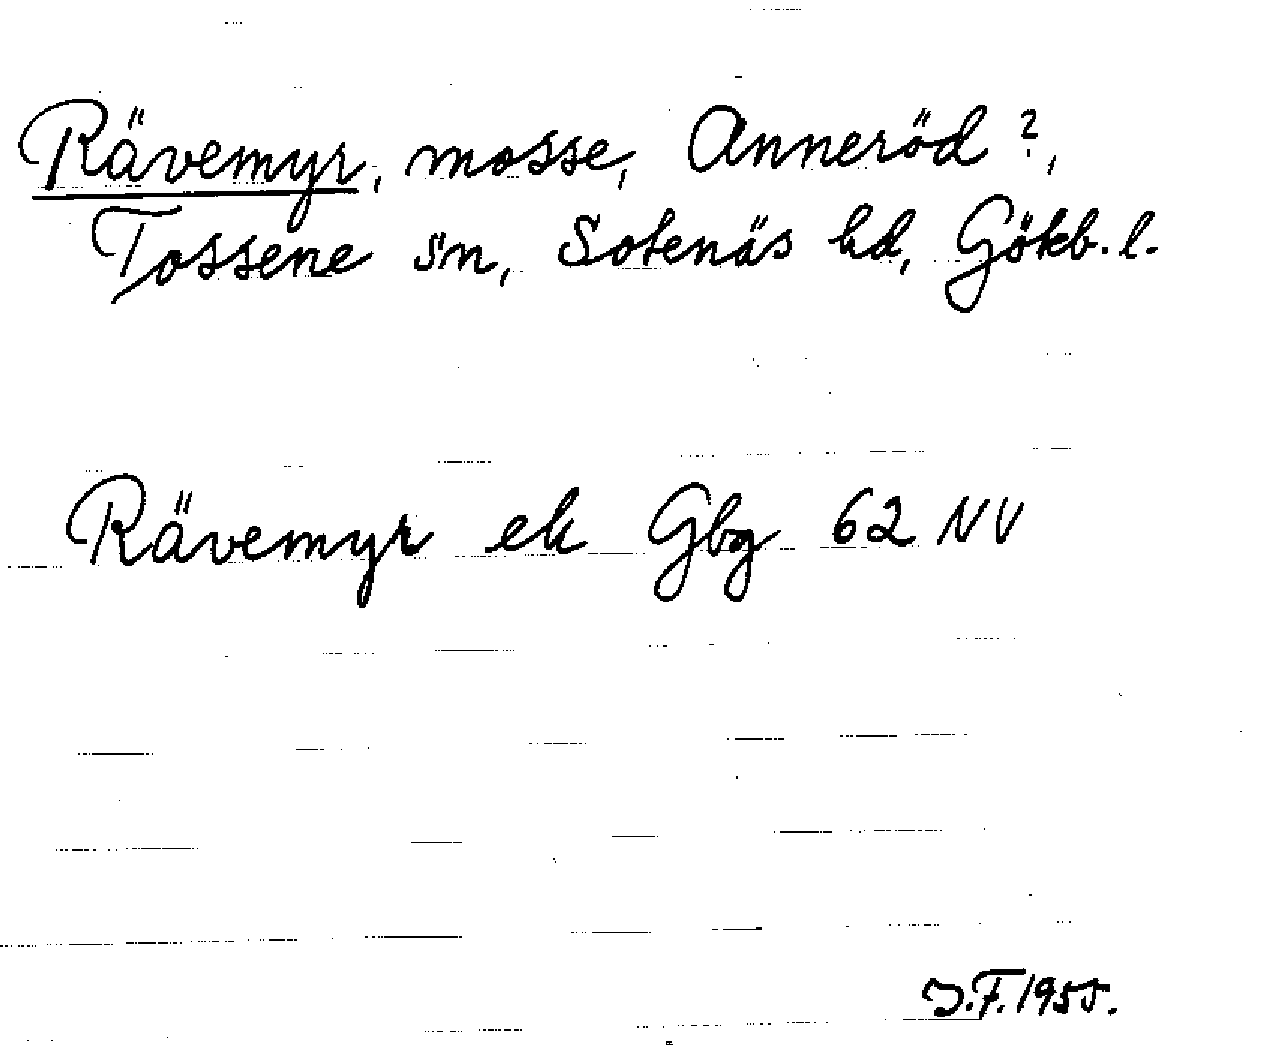 Rävemyr, mosse, Anneröd ?,
Tossene sn, Sotenäs hd, Gökb. l.
Rävemyr ek Gbg 62 NV
J.F. 1955.